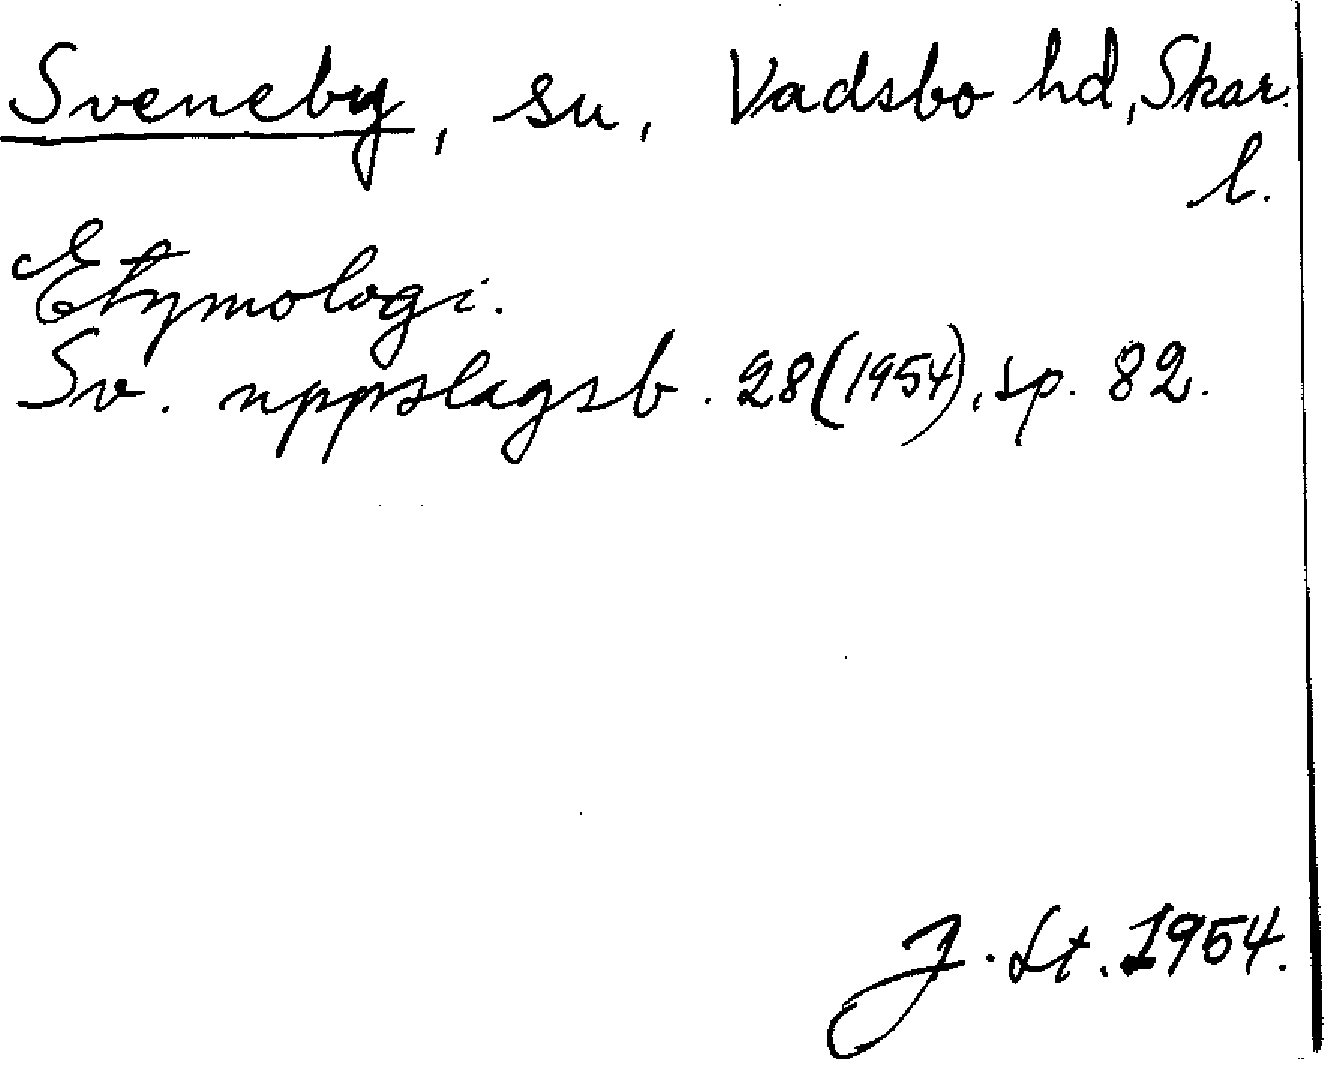 Sveneby, sn, Vadsbo hd, Skar.
l.
Etymologi.
Sv. uppslagsb. 28(1954), sp. 82.
J. St. 1954.